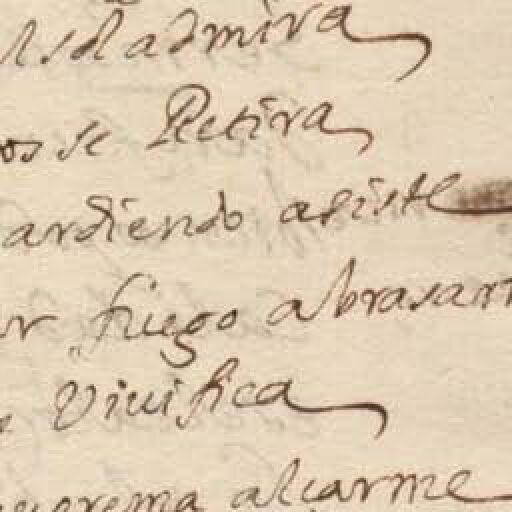 admira
os se Retira
ardiendo asiste
fuego abrasar
Viuifica
alçarme